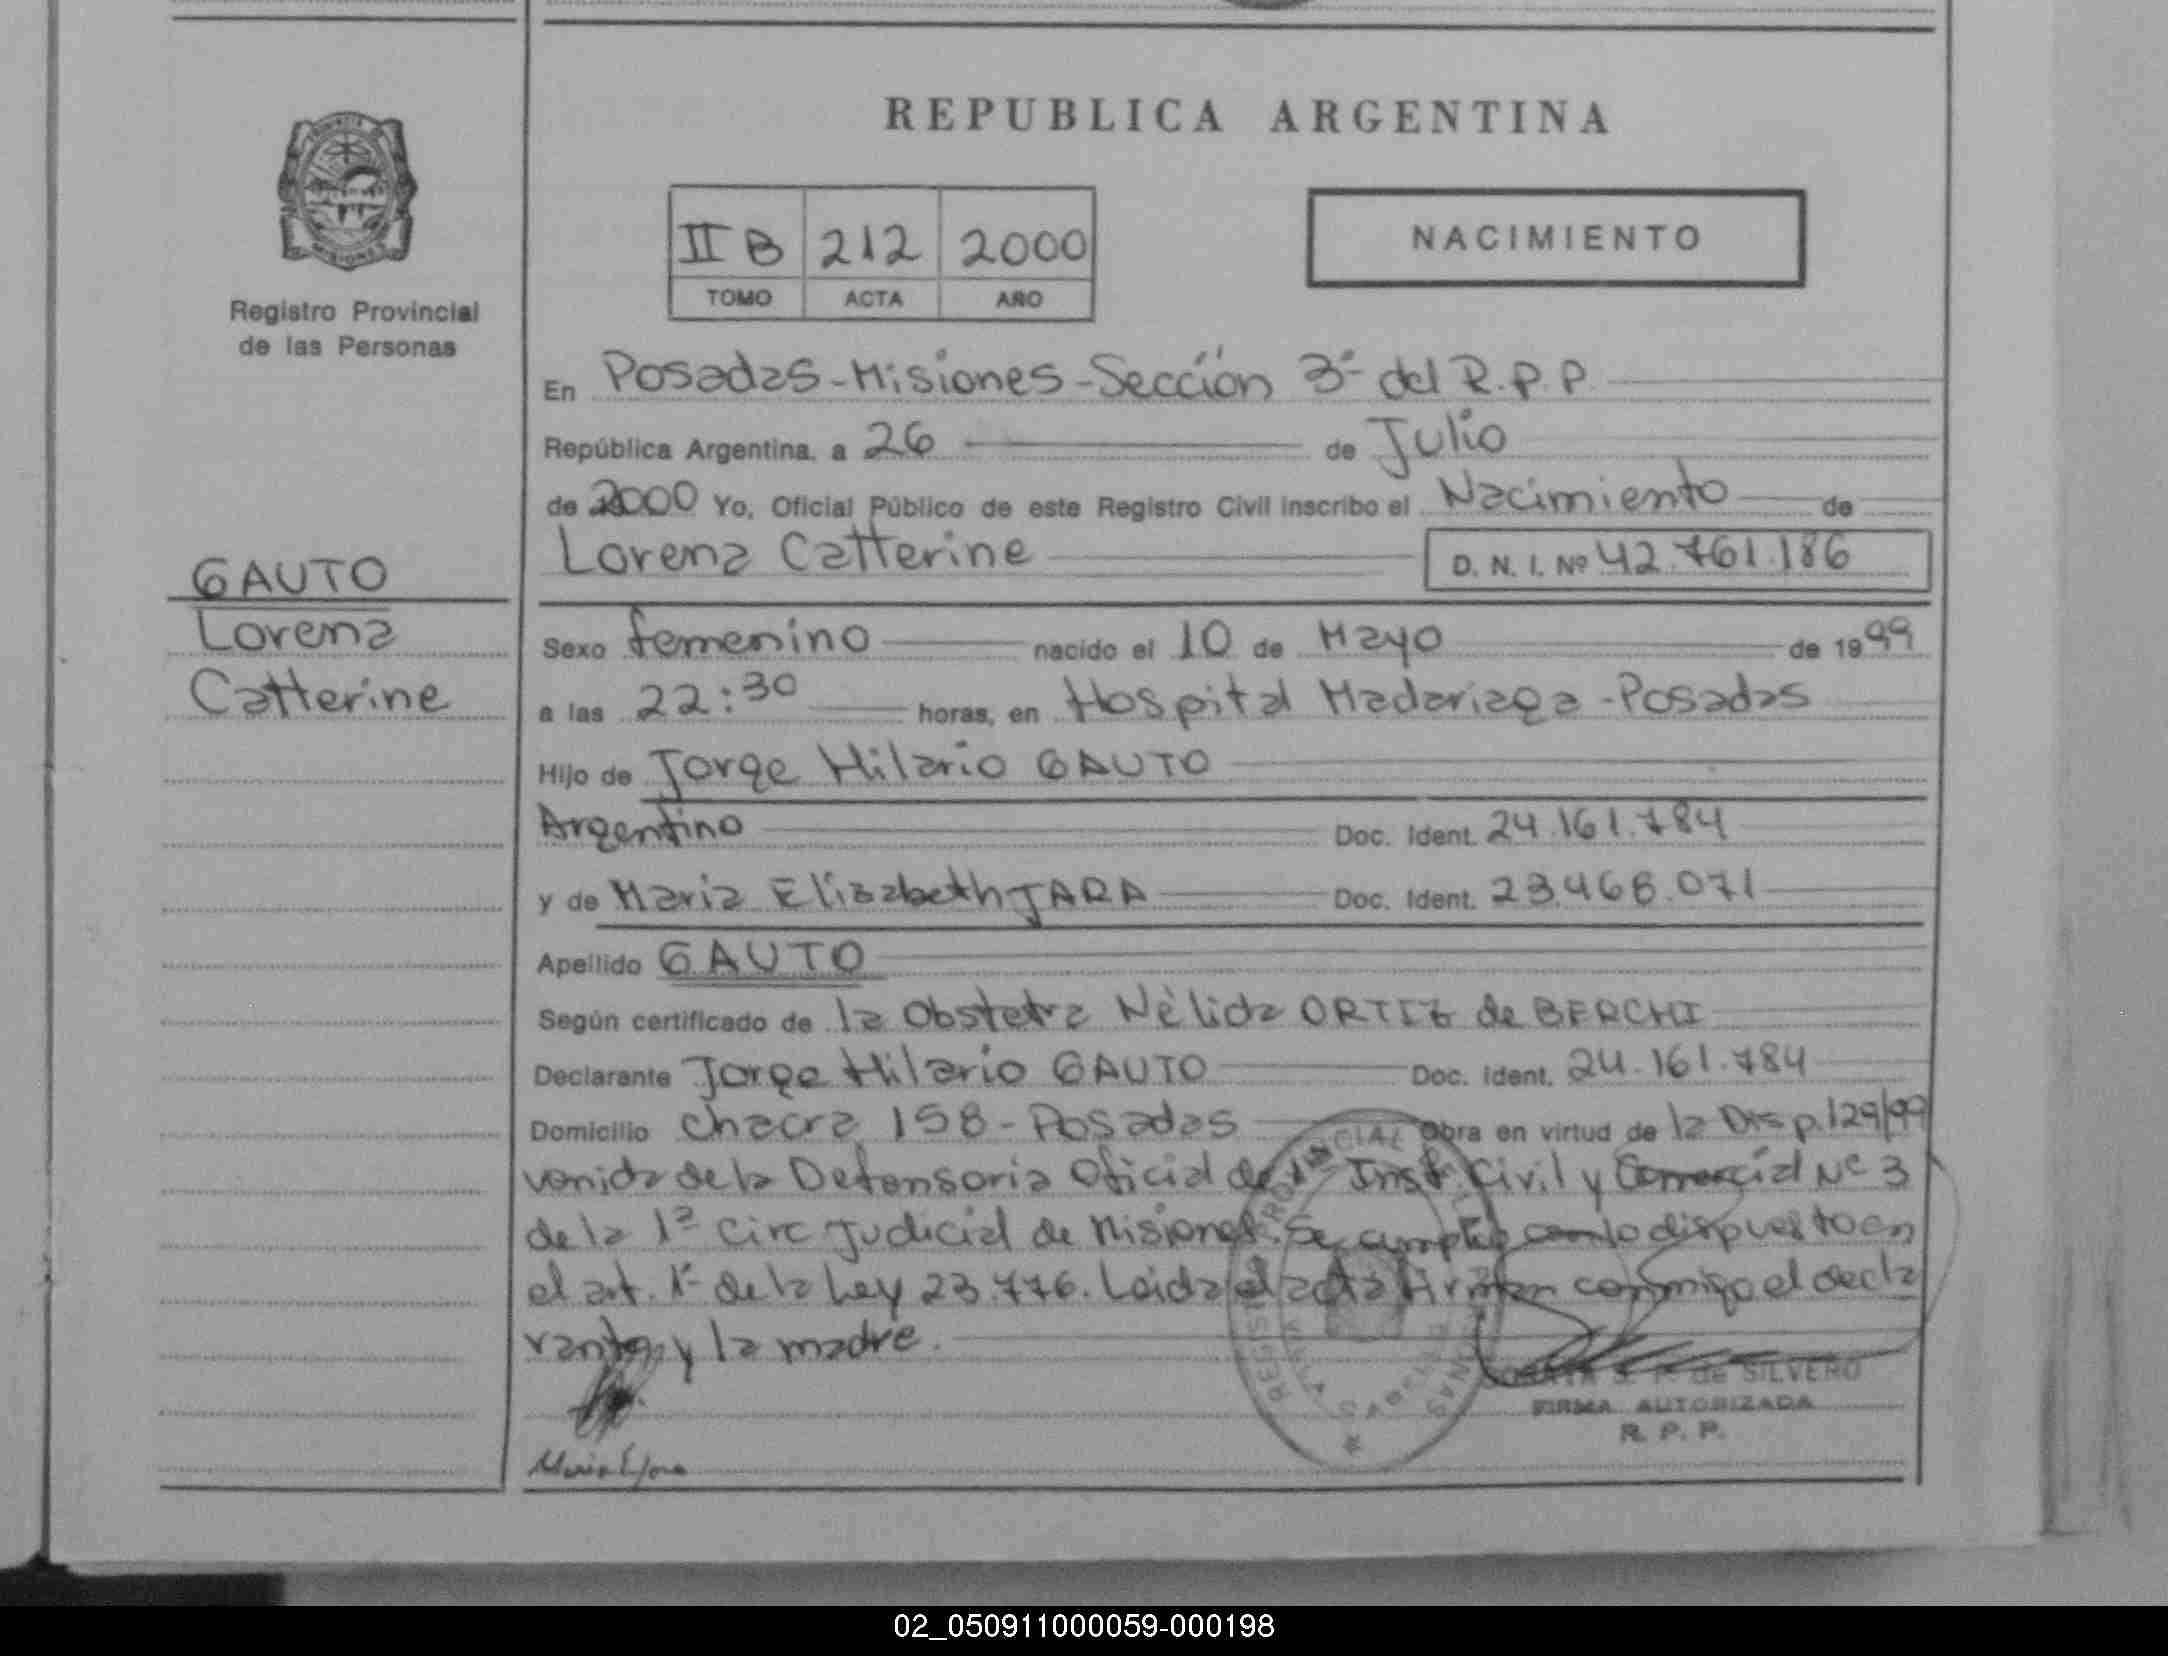 REPUBLICA ARGENTINA
PROVINCIA DE
MISIONES
Registro Provincial
de las Personas
II B 212 2000
TOMO ACTA AÑO
NACIMIENTO
En Posadas-Misiones-Sección 3ª del R.P.P.
República Argentina, a 26 de Julio
de 2000 Yo, Oficial Público de este Registro Civil inscribo el Nacimiento de
Lorena Catterine D. N. I. Nº 42.761.186
GAUTO
Lorena
Catterine
Sexo femenino nacido el 10 de Mayo de 1999
a las 22:30 horas, en Hospital Madariaga-Posadas
Hijo de Jorge Hilario GAUTO
Argentino Doc. Ident. 24.161.784
y de Maria Elisabeth JARA Doc. Ident. 23.468.071
Apellido GAUTO
Según certificado de la Obstetra Nélida ORTIZ de BERCHI
Declarante Jorge Hilario GAUTO Doc. Ident. 24.161.784
Domicilio chacra 158-Posadas Obra en virtud de la Disp. 129/99
venida de la Defensoria Oficial de Inst. Civil y Comercial Nº 3
de la 1ª Circ Judicial de Misiones. Se cumple con lo dispuesto en
el art. 1º de la Ley 23.776. Leida el acta firman conmigo el decla
rante y la madre.
S. P. de SILVERO
FIRMA AUTORIZADA
R. P. P.
Maria E Jara
02_050911000059-000198